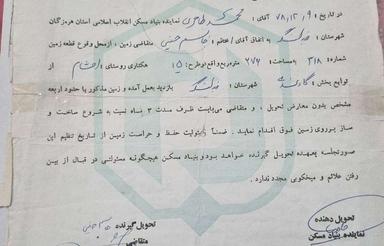 در تاریخ : ۷۸/۱۲/۹ آقای : محمد طاهری نماینده بنیاد مسکن انقلاب اسلامی استان هرمزگان
شهرستان : بندرلنگه به اتفاق آقای / خانم : حسینی متقاضی زمین ، از محل وقوع قطعه زمین
شماره : ۳۱۸ به مساحت : ۲۷۴ متر مربع واقع در طرح : ۱۵ هکتاری روستای : از
توابع بخش : شهرستان : بندرلنگه بازدید بعمل آمده و زمین مذکور با حدود اربعه
مشخص بدون معارض تحویل ، و متقاضی می‌بایست ظرف مدت ۳ ماه نسبت به شروع ساخت و
ساز بر روی زمین فوق اقدام نماید . ضمناً مسئولیت حفظ و حراست زمین از تاریخ تنظیم این
صورتجلسه بعهده تحویل گیرنده خواهد بود و بنیاد مسکن هیچگونه مسئولیتی در قبال از بین
رفتن علائم و میخکوبی مجدد ندارد .
تحویل دهنده
نماینده بنیاد مسکن
تحویل گیرنده
متقاضی